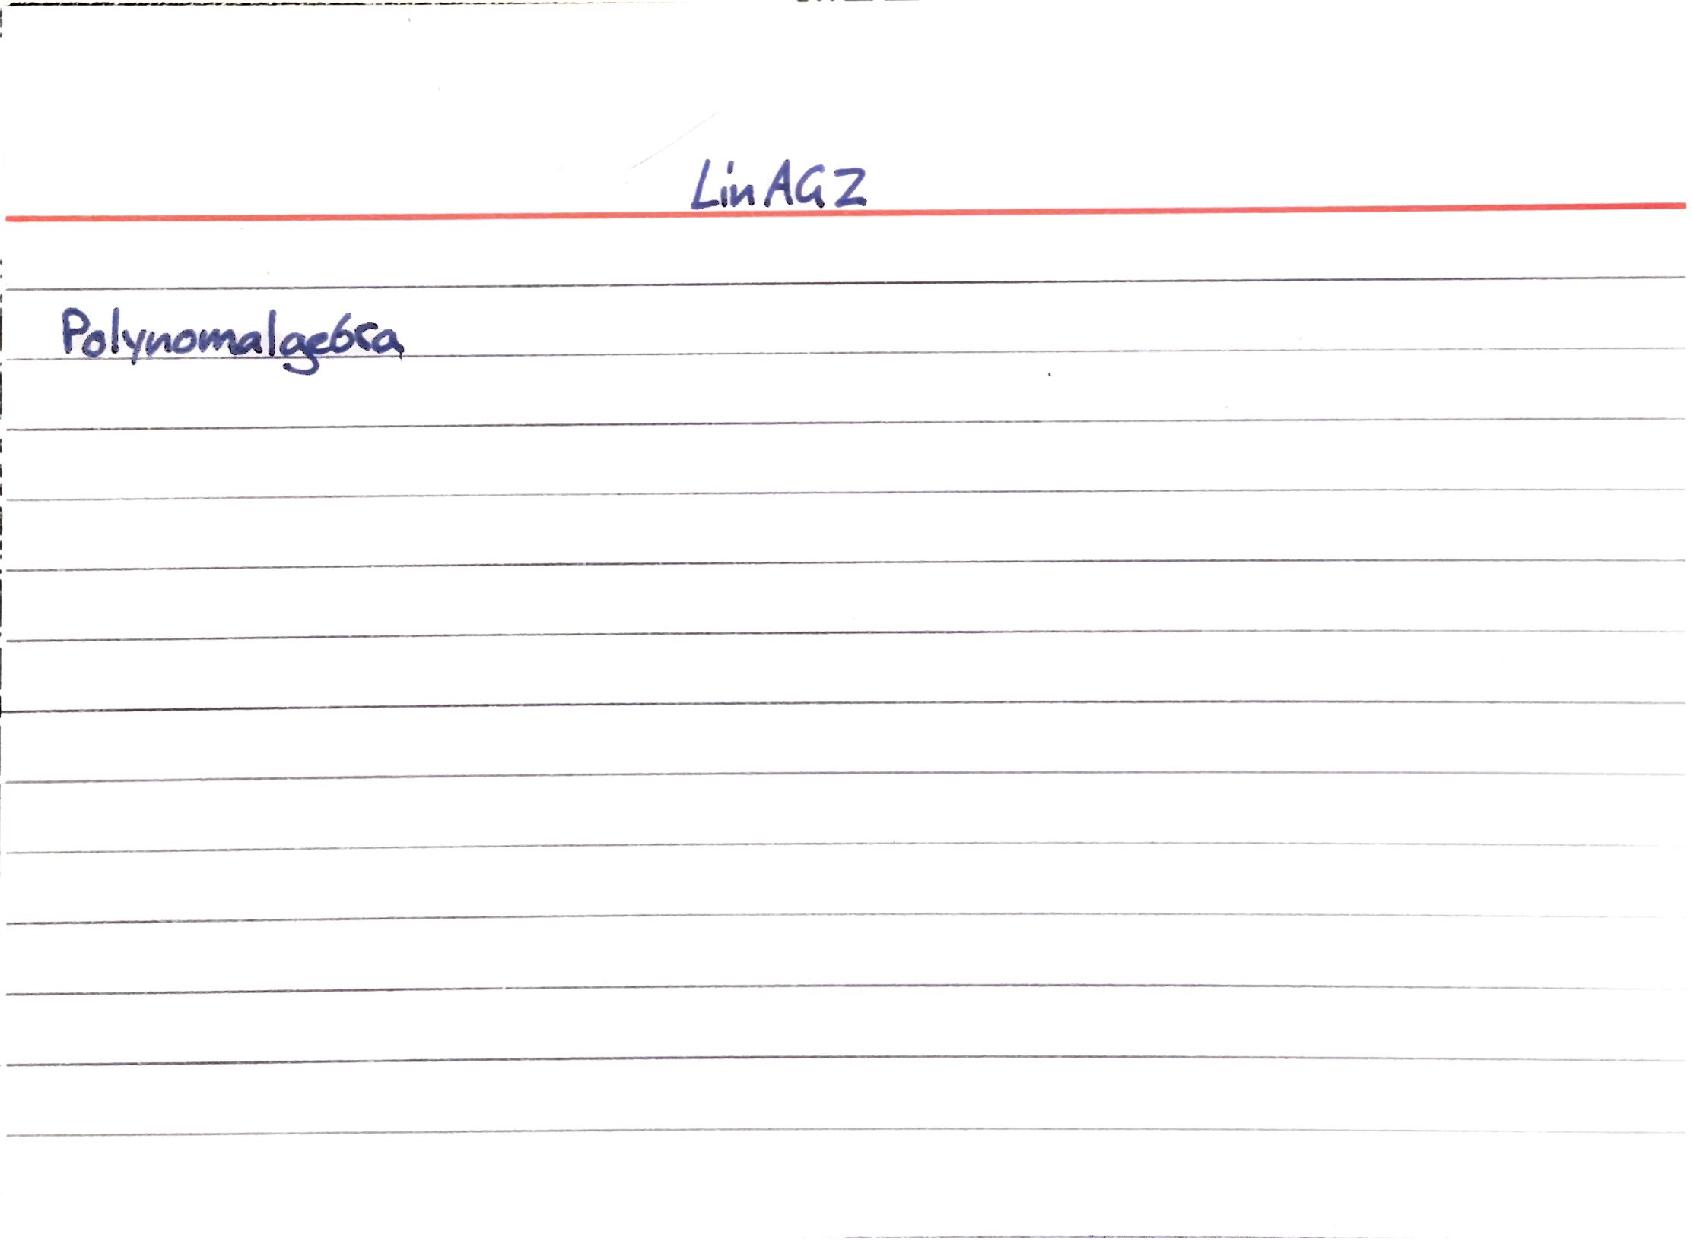 LinAG2
Polynomalgebra